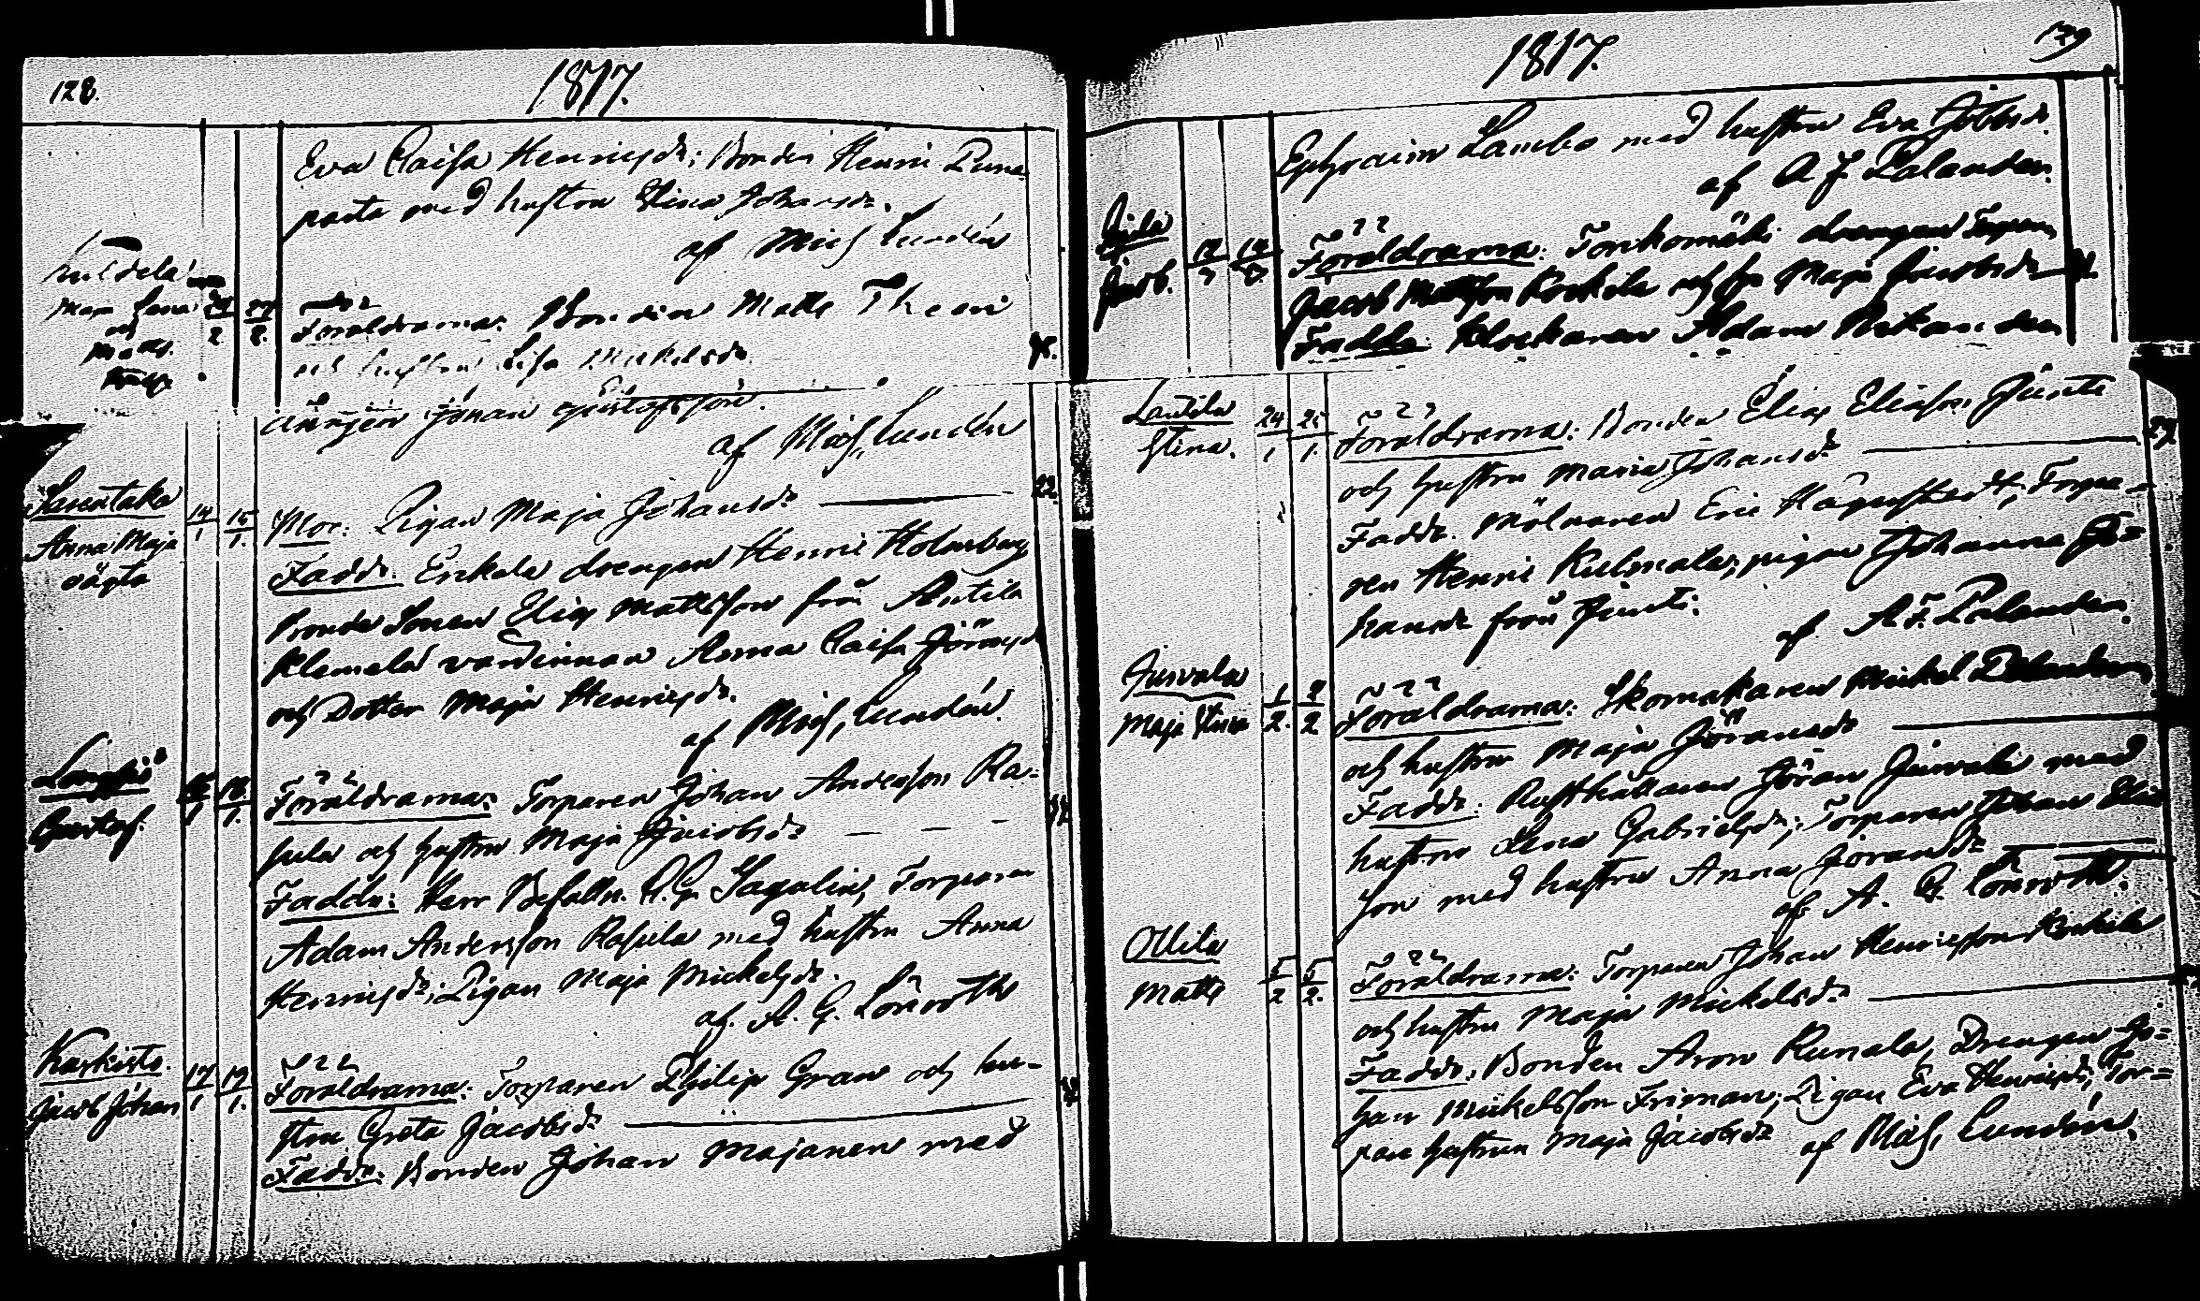 128.
1817.
Eva Caisa Henricsdr; Bonden Henric Puna-
parta med hustru Stina Johansdr.
af Mich, Lundén
Maja Lena
och
Matts.
24/2 27/2.
Föräldrarna: Bonden Matts
och hustrun Lisa Mickelsdr
48.
drängen Johan Gustafsson.
af Mich, Lundén
Anna Maja
oägta
14/1 15/1.
Mor: Pigan Maja Johansdr
22.
Faddr. Erkola drengen Henric Holmberg
Bonde Sonen Elias Mattsson från Antila
Klemelä värdinnan Anna Caisa Jöransdr
och Dotter Maja Henricsdr.
af Mich, Lundén.
Gustaf.
18/1.
Föräldrarna: Torparen Johan Andersson Ra-
sula och hustru Maja Jacobsdr
Faddr: Herr Befalln. A. G. Sagulin, Torparen
Adam Andersson Rasula med hustru Anna
Henricsdr; Pigan Maja Mickelsdr.
af. A. G. Lönroth
Karkisto.
Jacob Johan
17/1 19/1.
Föräldrarna: Torparen Philip Gran och hu-
stru Greta Jacobsdr
Faddr. Bonden Johan Majanen med
129
1817.
Ephraim Lambo med hustru Eva Jobsdr.
af A F Palander.
Jacob.
Föräldrarna: Torkomäki drengen
Jacob Mattsson och Maja Jacobsdr
Faddr. Klockaren Adam
Lautila
Stina.
24/1 25/1.
Föräldrarna: Bonden Elias Eliasson Junti
och hustru Maria Johansdr
27.
Faddr. Mölnaren Eric Hägerstedt; Torpa-
ren Henric Kulmala; pigan Johanna Jo-
hansdr från Junti.
af A. F. Palander.
Juvala
Maja Stina
1/2. 2/2
Föräldrarna: Skomakaren Mickel
och hustru Maja Göransdr
Faddr: Rusthållaren Göran Juvala med
hustru Lena Gabrielsdr; Torparen Johan Elias
son med hustru Anna Göransdr
af A. G. Lönroth.
Ollila
Matts
5/2 5/2.
Föräldrarna: Torparen Johan Henricsson
och hustru Maja Mickelsdr
Faddr. Bonden Aron Kunala, Drengen Jo-
han Mickelsson Friman; Pigan Eva Henricsdr; Tor-
pare hustrun Maja Jacobsdr
af Mich, Lundén.